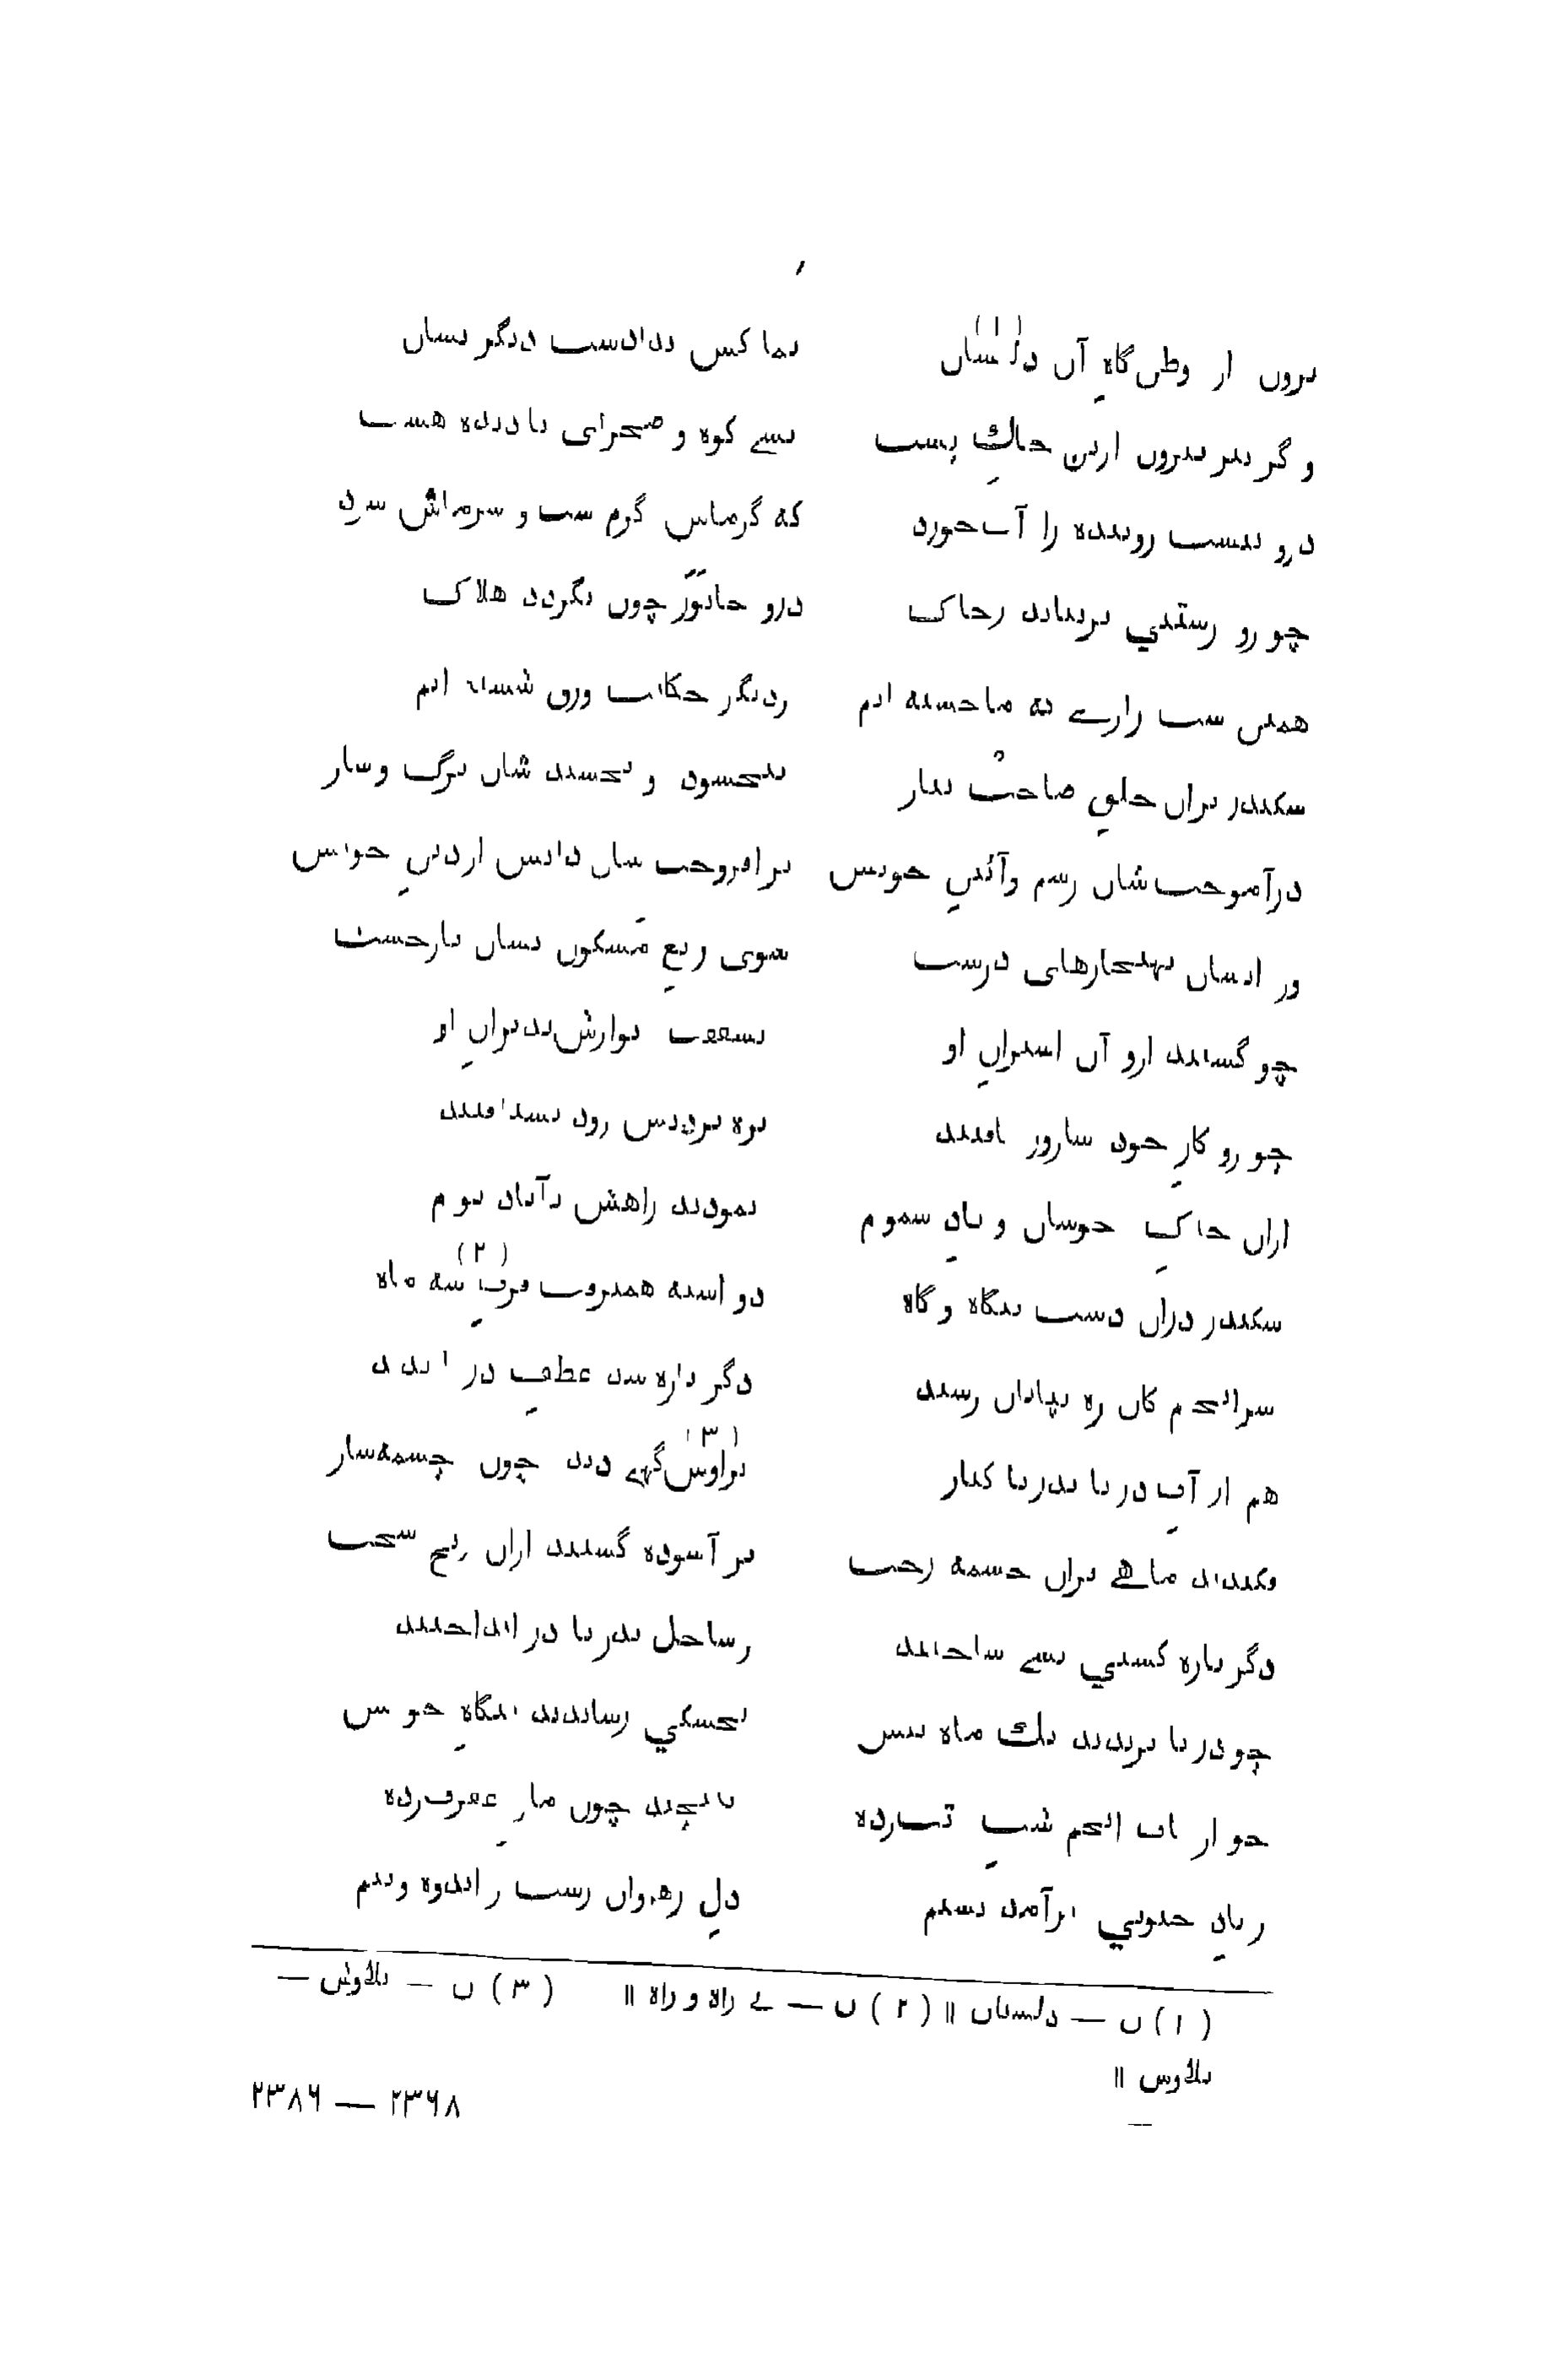 برون از وطن‌گاهِ آن دلستان (۱) بما کس ندانست دیگر نشان
و گر نیز بیرون ازین خاكِ پست بسے کوه و صحرای نادیده هست
درو نیست روینده را آبخورد که گرماش گرم ست و سرماش سرد
چو رو رستنی بر نیاید ز خاک درو جانور چون نگردد هلاک
همین ست رازے که ما جسته ایم ز دیگر حکایت ورق شسته ایم
سکندر بران خلقِ صاحب نیاز ببخشود و بخشید شان برگ و ساز
در آموخت شان رسم و آئینِ خویش بر افروخت شان دانش از دینِ خویش
وز ایشان بهنجارهای درست سوی ربعِ مسکون نشان باز جست
چو گشتند ازو آن اسیرانِ او بشفقت نوازش پذیرانِ او
چو رو کارِ خود ساز ور یافتند بره بردنش زود بشتافتند
ازان خاکِ جوشان و بادِ سموم نمودند راهش بآباد بوم
سکندر دران دست بیگاه و گاه دو اسپه همیرفت قربِ سه ماه (۲)
سرانجام کان ره بپایان رسید دگر باره شد عطفِ دریا پدید
هم از آبِ دریا بدریا کنار تراوش‌گهے دید چون چشمه‌سار (۳)
فکندند ماهے بران چشمه رخت بر آسوده گشتند ازان رنج سخت
دگر باره کشتی بسے ساختند ز ساحل بدریا در انداختند
چو دریا بریدند یك ماه بیش بخشکی رساندند بنگاهِ خویش
جو از تاب انجم شبِ تب‌زده بپیچید چون مارِ عقرب‌زده
ز بادِ جنوبی برآمد نسیم دلِ رهروان رست ز اندوه و بیم
(۱) ن — دلستان ॥ (۲) ن — بے راه و راه ॥ (۳) ن — بلاوش —
بلاوس ॥
۲۳۶۸ — ۲۳۸۶